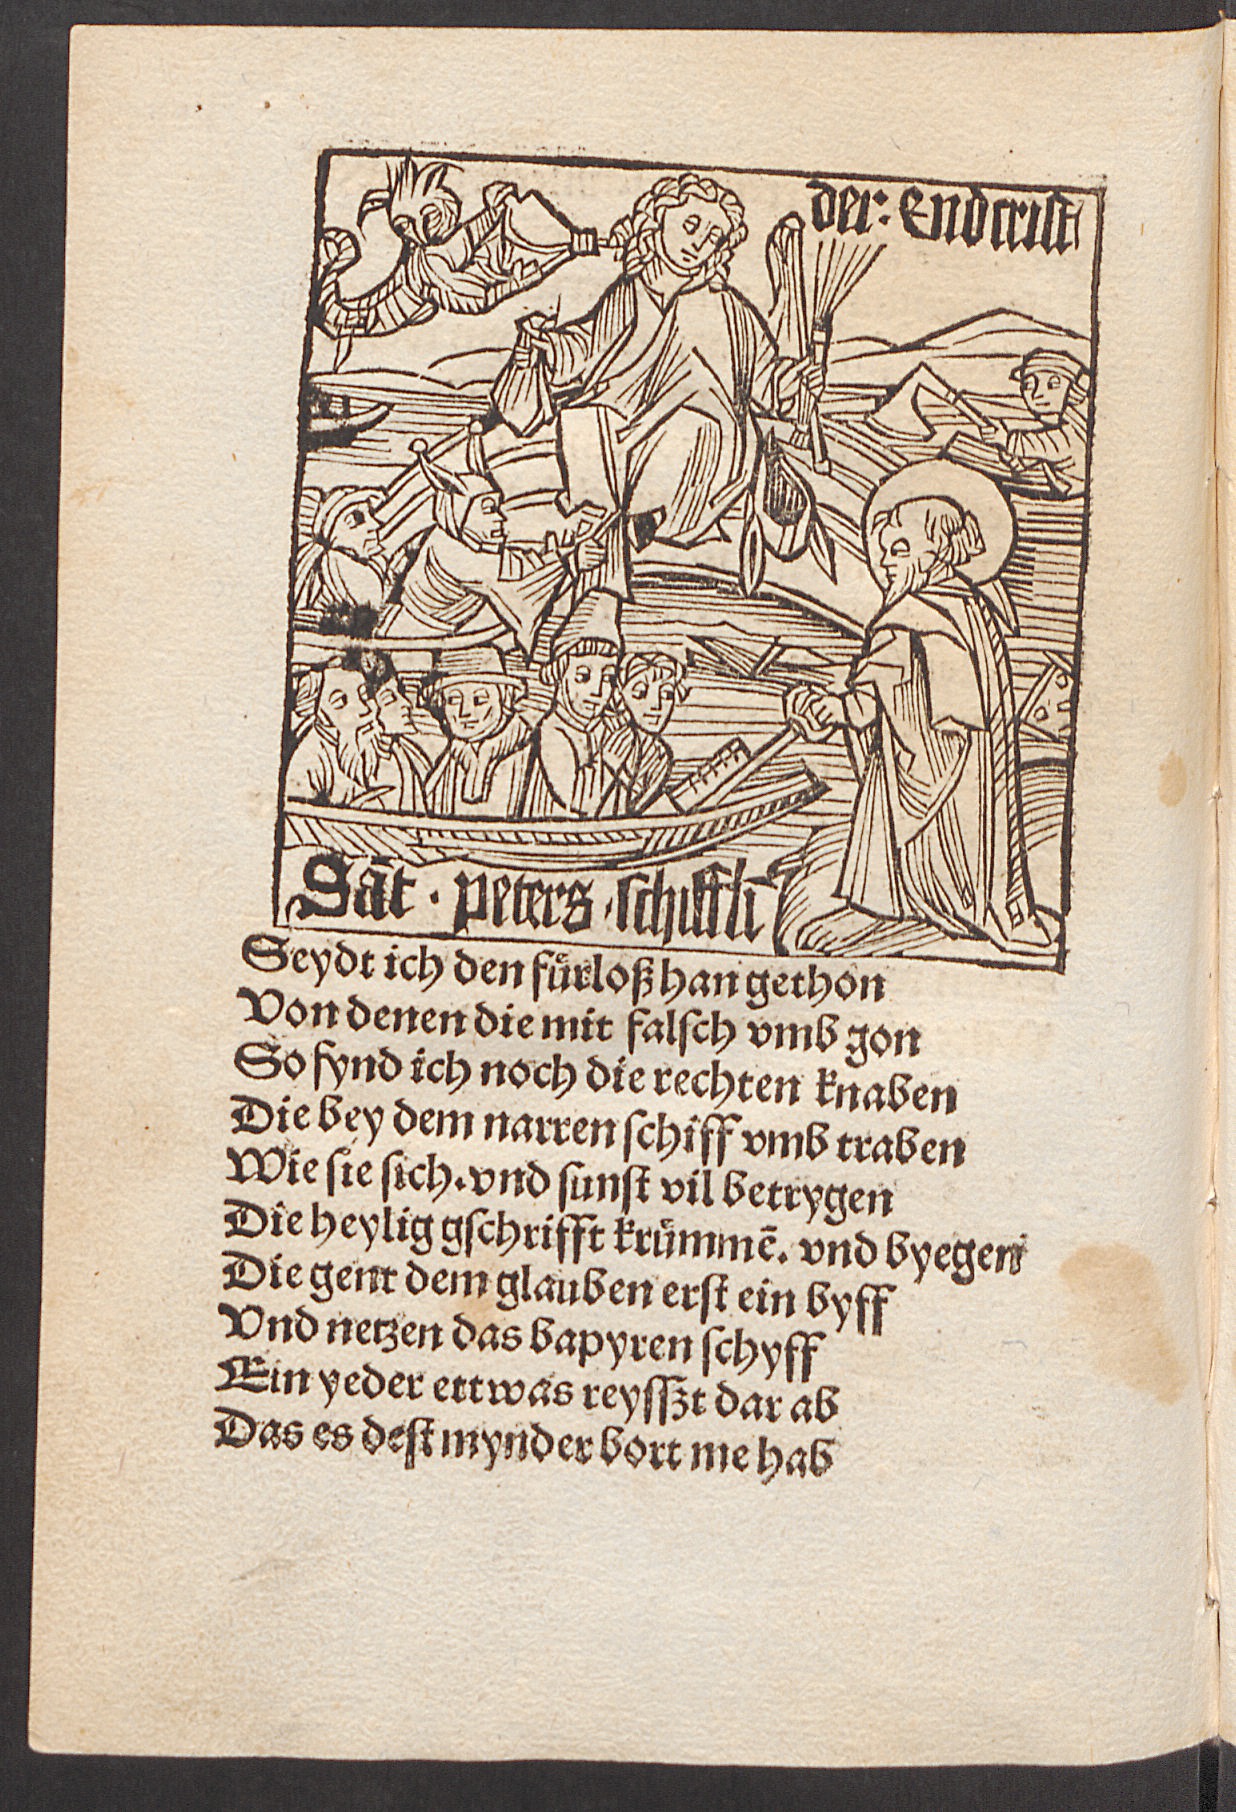 der: Endcrist
Sāt · peters · schiffli
Seydt ich den fuͤrloß han gethon
Von denen die mit falsch vmb gon
So fynd ich noch die rechten knaben
Die bey dem narren schiff vmb traben
Wie sie sich. vnd sunst vil betrygen
Die heylig gschrifft kruͤmmē. vnd byegen
Die gent dem glauben erst ein byff
Vnd netzen das bapyren schyff
Ein yeder ettwas reyssszt dar ab
Das es dest mynder bort me hab